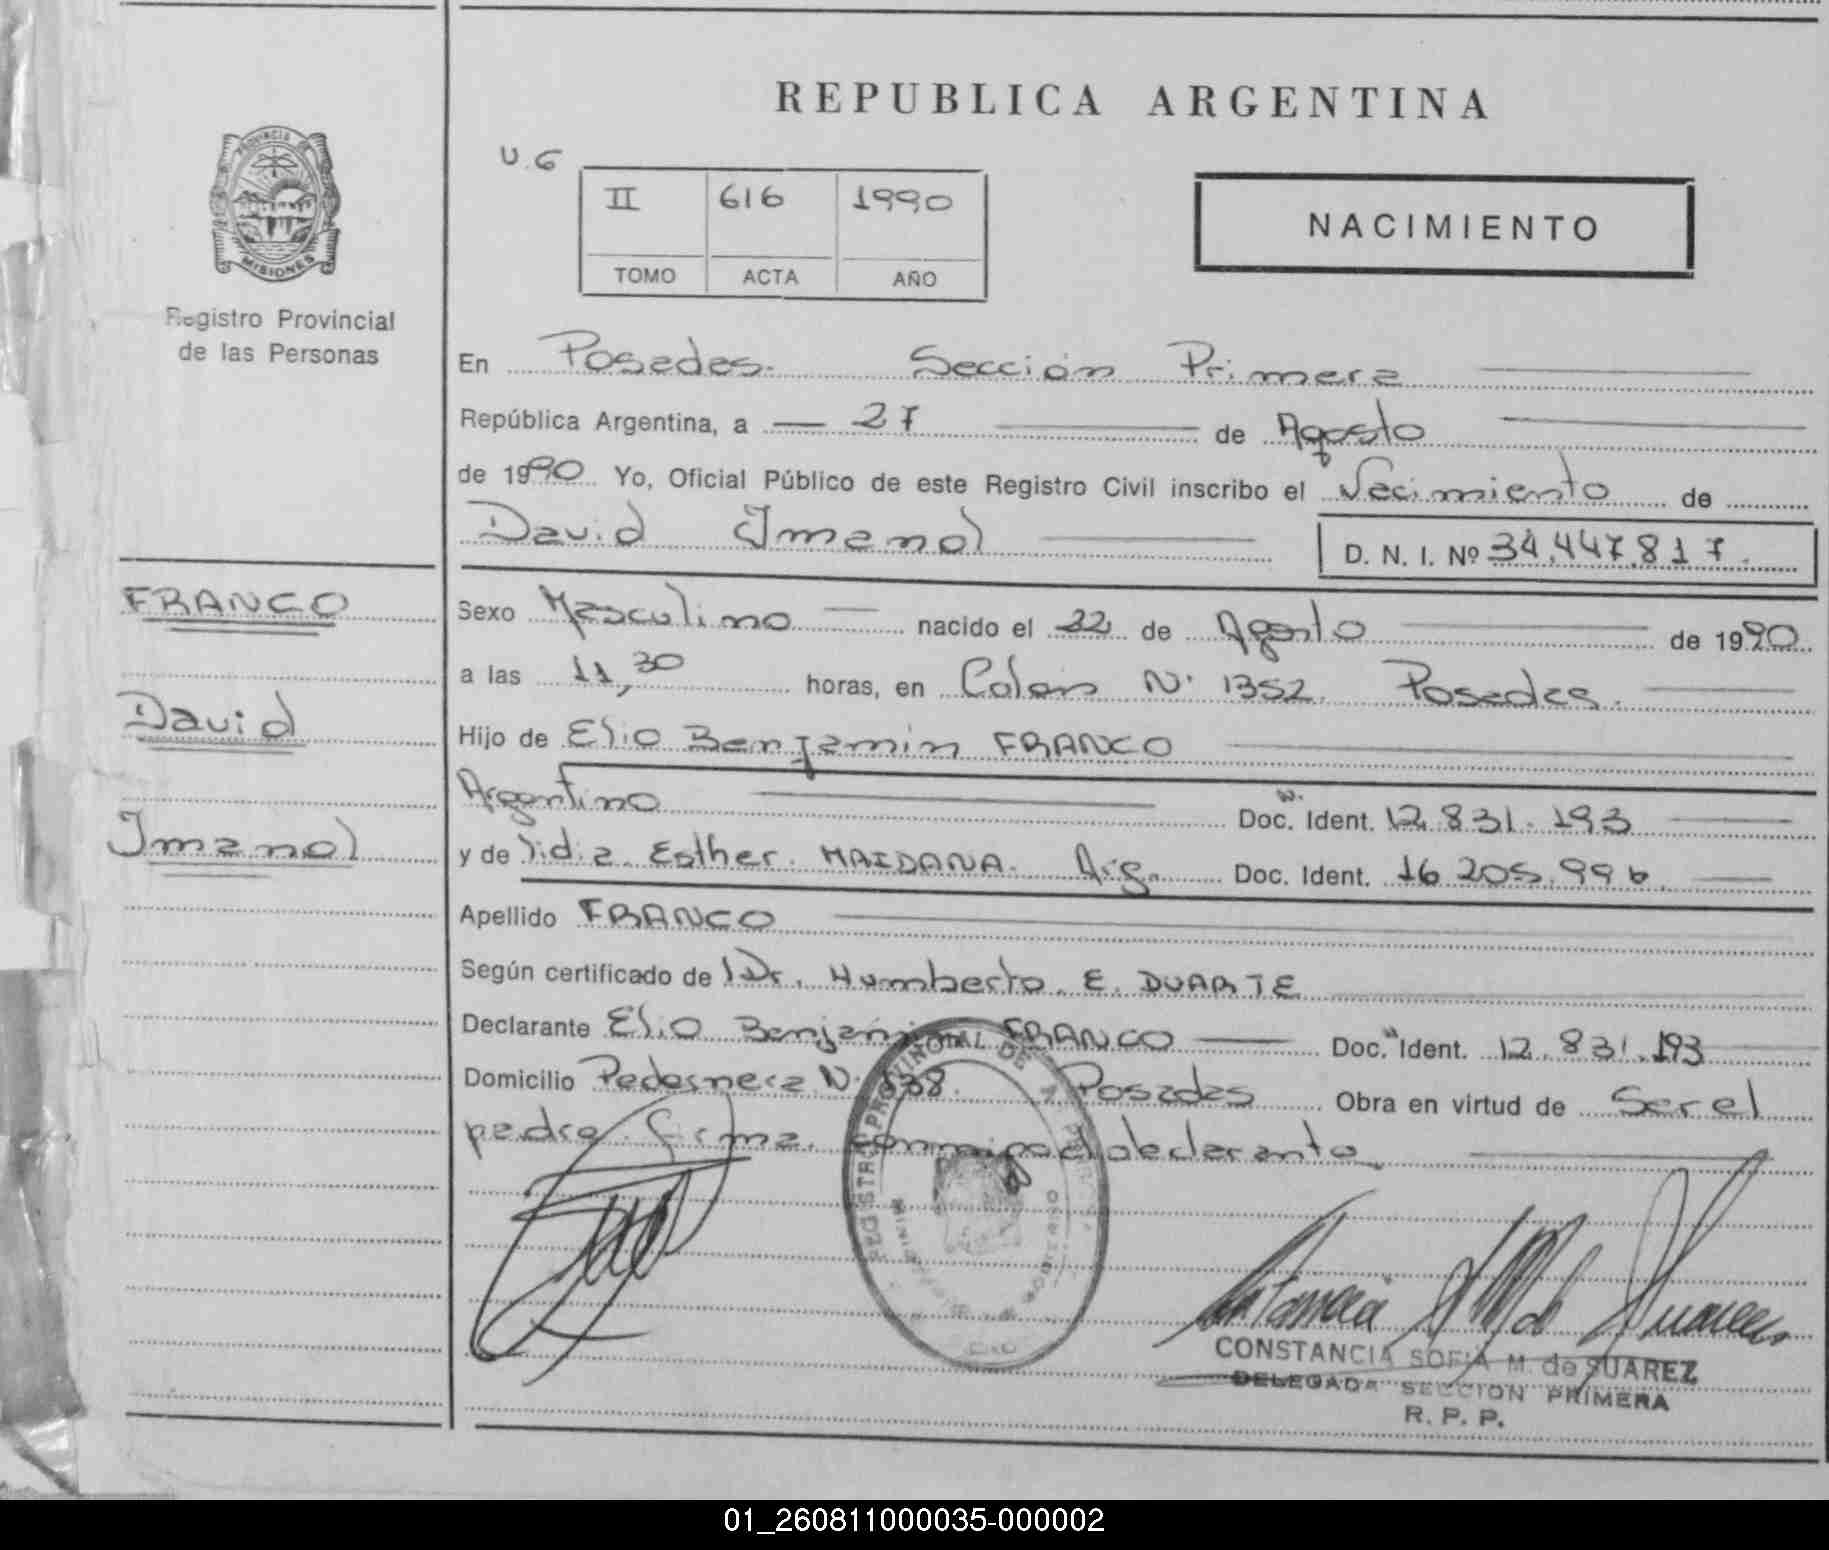 REPUBLICA ARGENTINA
PROVINCIA DE
MISIONES
Registro Provincial
de las Personas
U.G
II 616 1990
TOMO ACTA AÑO
NACIMIENTO
En Posadas. Sección Primera
República Argentina, a 27 de Agosto
de 1990 Yo, Oficial Público de este Registro Civil inscribo el Nacimiento de
David Imanol D. N. I. Nº 34.447.817.
FRANCO
David
Imanol
Sexo Masculino nacido el 22 de Agosto de 1990
a las 11,30 horas, en Colon N. 1352. Posadas.
Hijo de Elio Benjamin FRANCO
Argentino Doc. Ident. 12.831.193
y de lidia Esther. MAIDANA. Arg. Doc. Ident. 16 205.996.
Apellido FRANCO
Según certificado de Dr. Humberto. E. DUARTE
Declarante Elio Benjamin FRANCO Doc. Ident. 12.831.193
Domicilio Pedernera N. Posadas Obra en virtud de Ser el
padre. firma. conmigo el declarante.
REGISTRO PROVINCIAL DE
CONSTANCIA SOFIA M. de SUAREZ
DELEGADA SECCION PRIMERA
R. P. P.
01_260811000035-000002